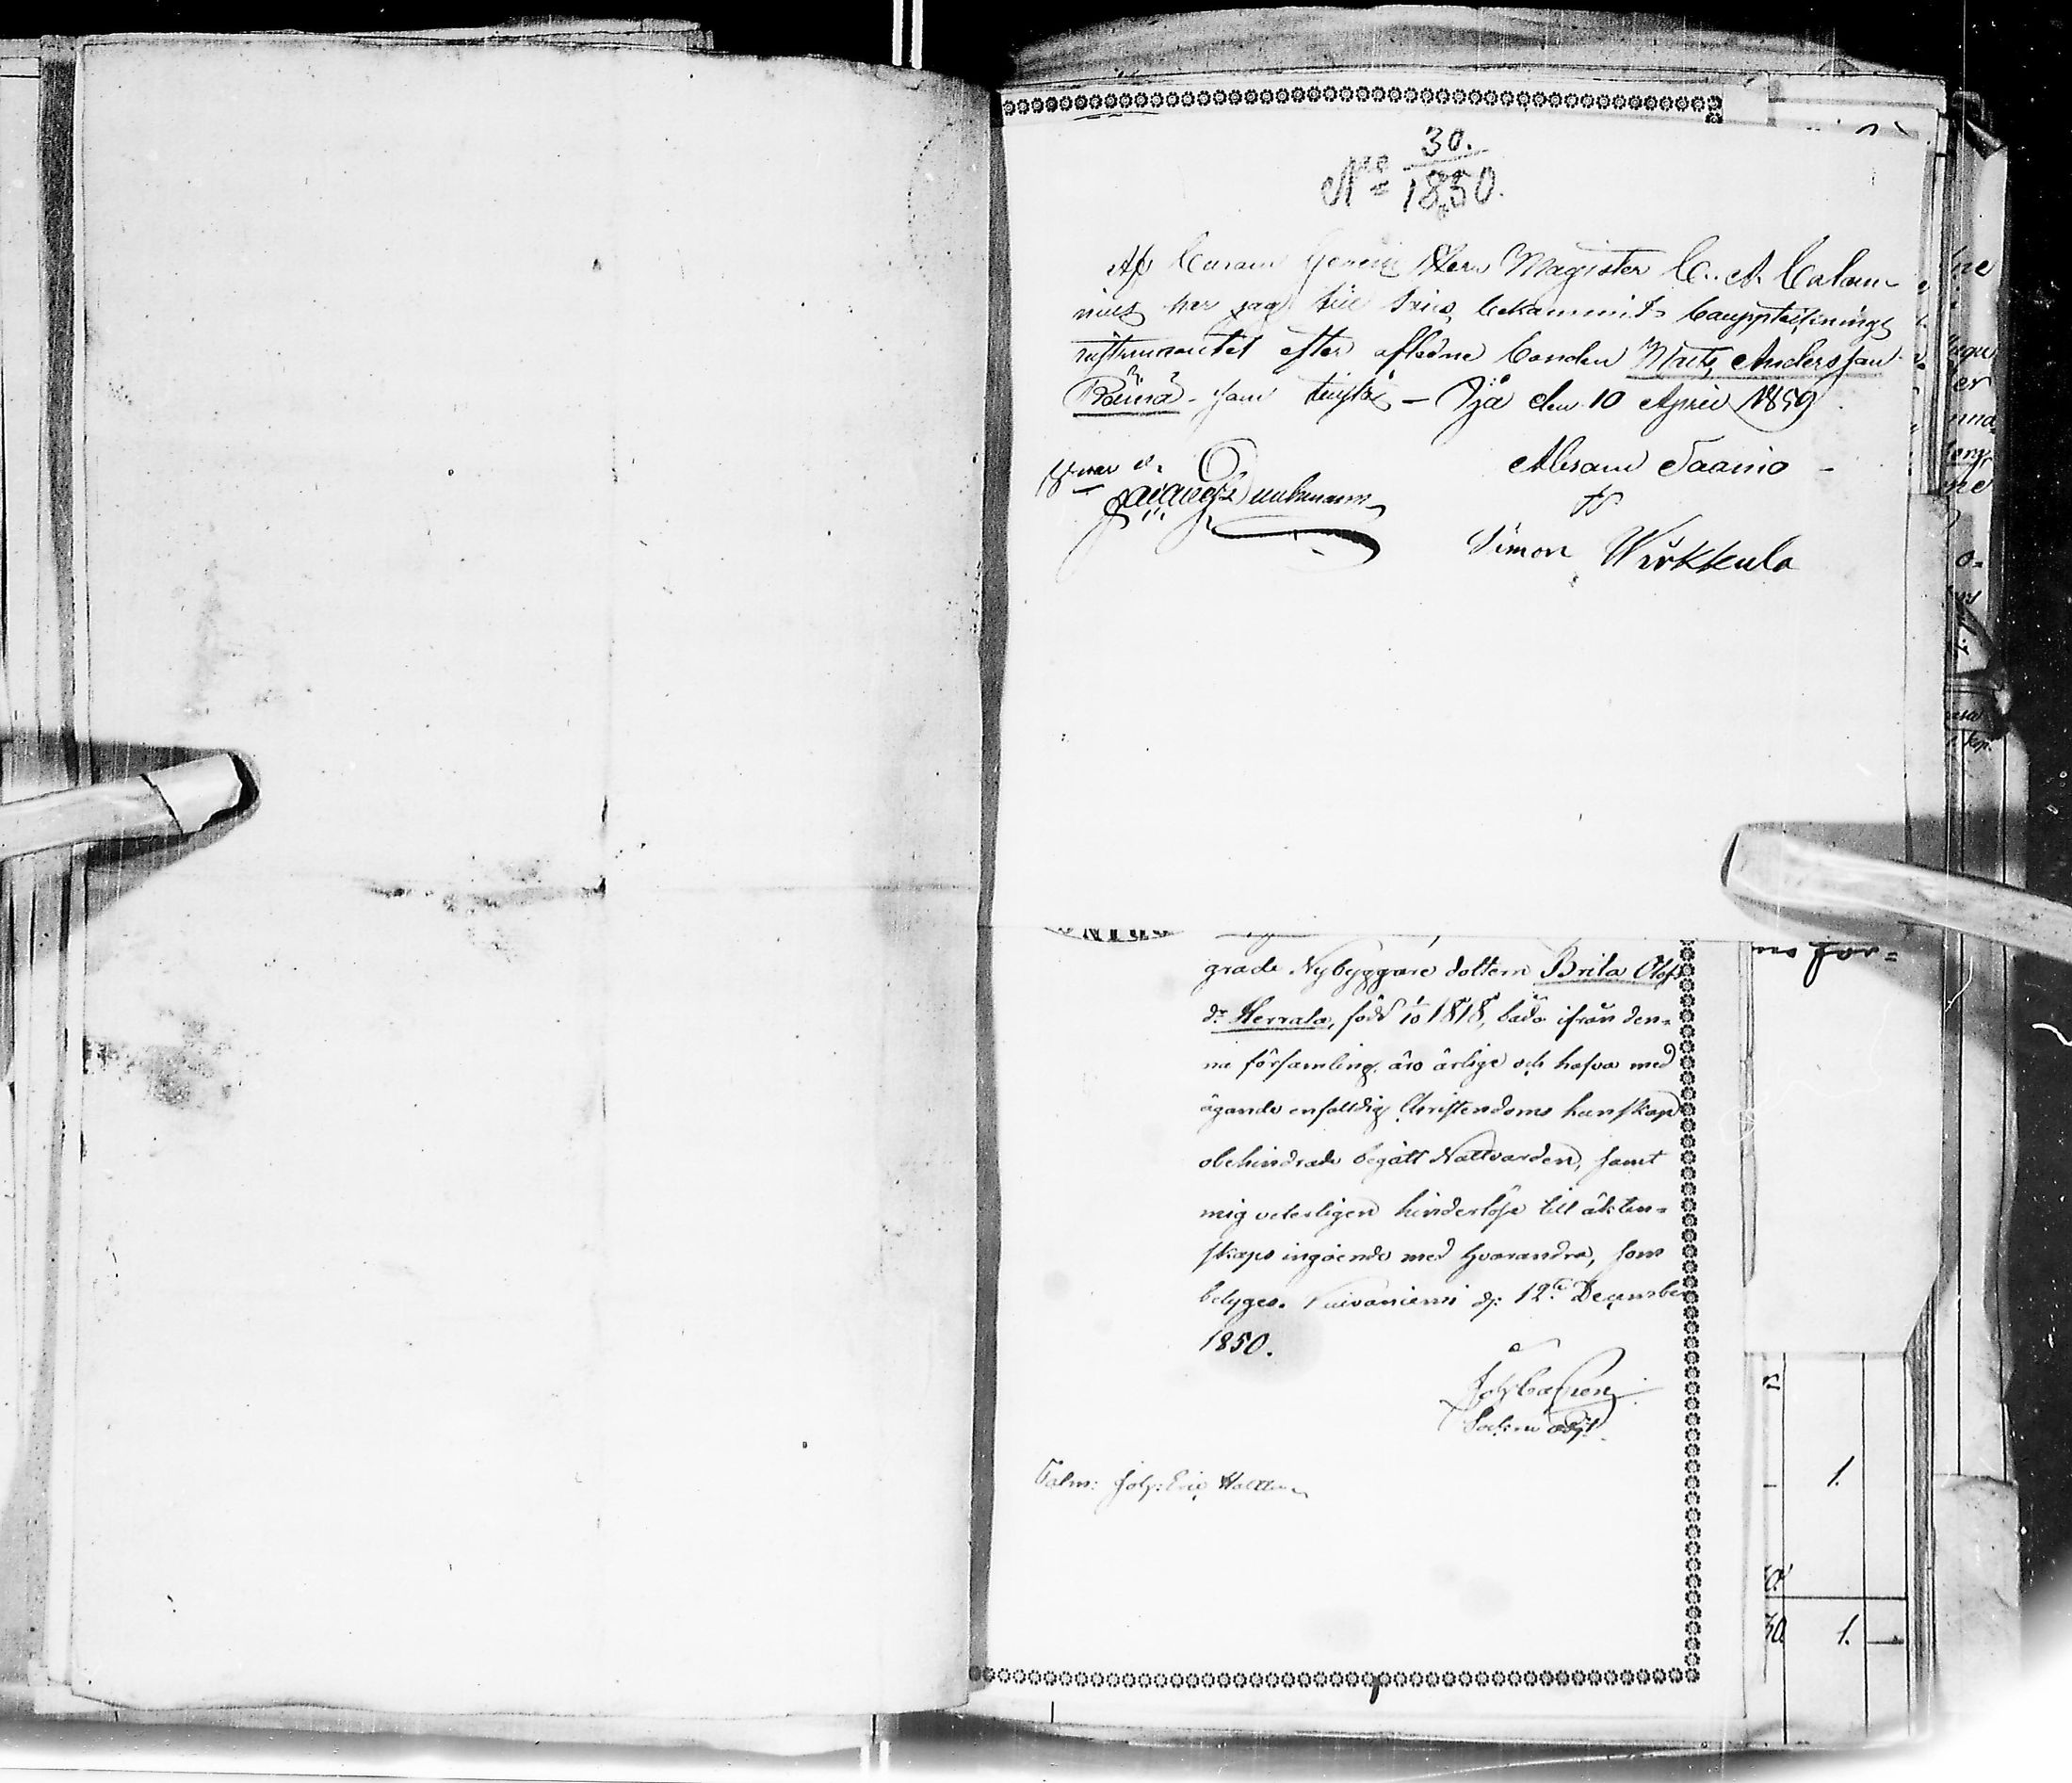 30.
No 1850.
Af Curam Gerens Herr Magister C. A. Calam-
nius har jag till Tries bekommit bouppteknings
instrumentet efter aflidne bonden Matts Andersson
Räinä som - Ijå den 10 April 1859
Abram Taanio
Simon Wirkkula
grade Nybyggare dottern Brita Olofs
dr Herrala, född 1/10 1818, båda ifrån den-
na församling, äro ärlige och hafva med
ägande enfalldig Christendoms kunskap
obehindrade begått Nattvarden, samt
mig veterligen hinderlöse till äkten-
skaps ingående med hvarandra, som
betygas. Kuivaniemi d: 12te December
1850.
Joh: Eric
ns för=
1.
30 1.